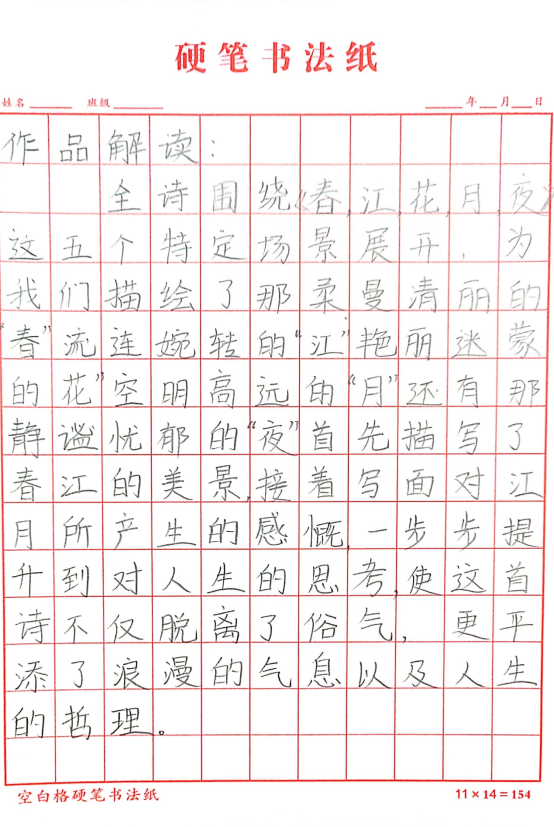 硬笔书法纸
姓名 班级 年 月 日
作品解读：
全诗围绕《春,江,花,月,夜》
这五个特定场景展开，为
我们描绘了那柔曼清丽的
“春”流连婉转的“江”艳丽迷蒙
的花”空明高远的“月”还有那
静谧忧郁的“夜”首先描写了
春江的美景,接着写面对江
月所产生的感慨,一步步提
升到对人生的思考,使这首
诗不仅脱离了俗气，更平
添了浪漫的气息以及人生
的哲理。
空白格硬笔书法纸 11×14=154